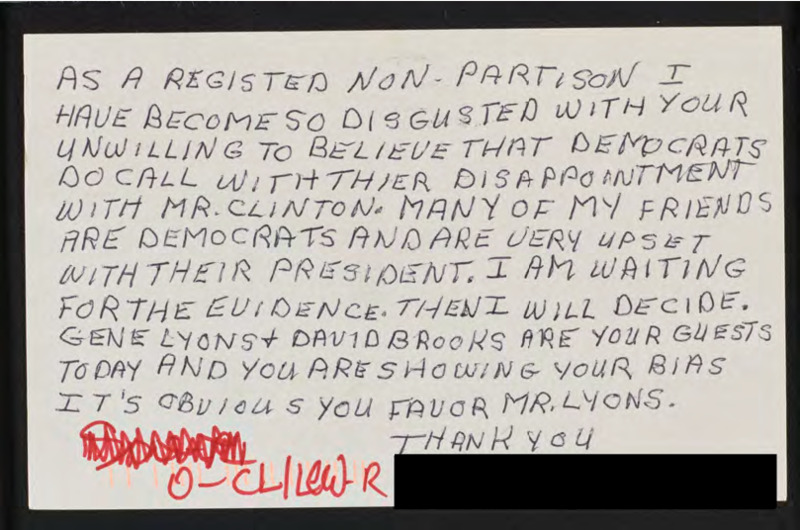 AS A REGISTERED NON-PARTISON I
HAVE BECOME SO DISGUSTED WITH YOUR
UNWILLING TO BELIEVE THAT DEMOCRATS
DO CALL WITH THIER DISAPPOINTMENT
WITH MR. CLINTON. MANY OF MY FRIENDS
ARE DEMOCRATS AND ARE VERY UPSET
WITH THEIR PRESIDENT. I AM WAITING
FOR THE EVIDENCE. THEN I WILL DECIDE.
GENE LYONS & DAVID BROOKS ARE YOUR GUESTS
TODAY AND YOU ARE SHOWING YOUR BIAS
IT'S OBVIOUS YOU FAVOR MR. LYONS.
THANK YOU
O-CL/LEW-R